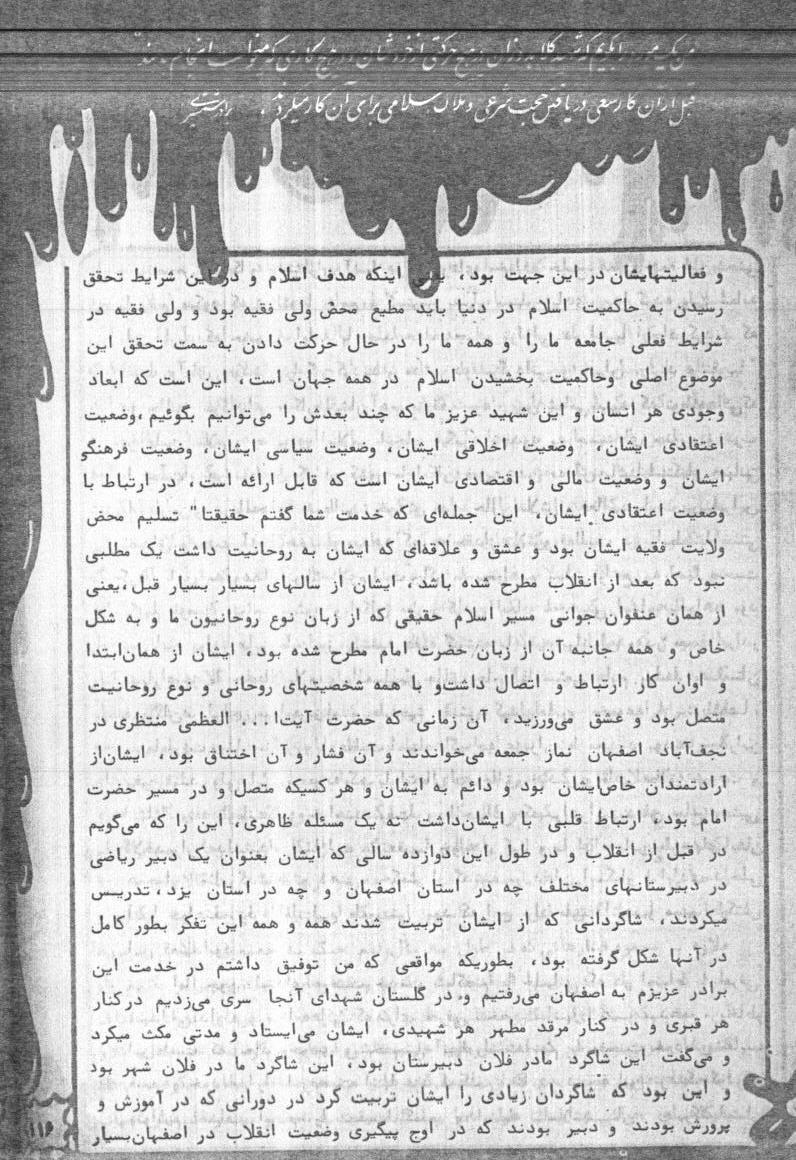 من میتونم بگویم که شهید کلاهدوزان در هیچ حرکتی از خودشان و در هیچ کاری که میخواست انجام بدهند
قبل از آن کار سعی در یافتن حجت شرعی و ملاک اسلامی برای آن کار میکردند.
و فعالیتهایشان در این جهت بود، یعنی اینکه هدف اسلام و در این شرایط تحقق
رسیدن به حاکمیت اسلام در دنیا باید مطیع محض ولی فقیه بود و ولی فقیه در
شرایط فعلی جامعه ما را و همه ما را در حال حرکت دادن به سمت تحقق این
موضوع اصلی وحاکمیت بخشیدن اسلام در همه جهان است، این است که ابعاد
وجودی هر انسان و این شهید عزیز ما که چند بعدش را می‌توانیم بگوئیم،وضعیت
اعتقادی ایشان، وضعیت اخلاقی ایشان، وضعیت سیاسی ایشان، وضعیت فرهنگی
ایشان و وضعیت مالی و اقتصادی ایشان است که قابل ارائه است، در ارتباط با
وضعیت اعتقادی ایشان، این جمله‌ای که خدمت شما گفتم حقیقتا" تسلیم محض
ولایت فقیه ایشان بود و عشق و علاقه‌ای که ایشان به روحانیت داشت یک مطلبی
نبود که بعد از انقلاب مطرح شده باشد، ایشان از سالهای بسیار بسیار قبل،یعنی
از همان عنفوان جوانی مسیر اسلام حقیقی که از زبان نوع روحانیون ما و به شکل
خاص و همه جانبه آن از زبان حضرت امام مطرح شده بود، ایشان از همان‌ابتدا
و اوان کار ارتباط و اتصال داشت‌و با همه شخصیتهای روحانی و نوع روحانیت
متصل بود و عشق می‌ورزید، آن زمانی که حضرت آیت‌ا... العظمی منتظری در
نجف‌آباد اصفهان نماز جمعه می‌خواندند و آن فشار و آن اختناق بود، ایشان‌از
ارادتمندان خاص‌ایشان بود و دائم به ایشان و هر کسیکه متصل و در مسیر حضرت
امام بود، ارتباط قلبی با ایشان‌داشت نه یک مسئله ظاهری، این را که می‌گویم
در قبل از انقلاب و در طول این دوازده سالی که ایشان بعنوان یک دبیر ریاضی
در دبیرستانهای مختلف چه در استان اصفهان و چه در استان یزد، تدریس
میکردند، شاگردانی که از ایشان تربیت شدند همه و همه این تفکر بطور کامل
در آنها شکل گرفته بود، بطوریکه مواقعی که من توفیق داشتم در خدمت این
برادر عزیزم به اصفهان می‌رفتیم و در گلستان شهدای آنجا سری می‌زدیم درکنار
هر قبری و در کنار مرقد مطهر هر شهیدی، ایشان می‌ایستاد و مدتی مکث میکرد
و می‌گفت این شاگرد مادر فلان دبیرستان بود، این شاگرد ما در فلان شهر بود
و این بود که شاگردان زیادی را ایشان تربیت کرد در دورانی که در آموزش و
پرورش بودند و دبیر بودند که در اوج پیگیری وضعیت انقلاب در اصفهان‌بسیار
۱۱۶